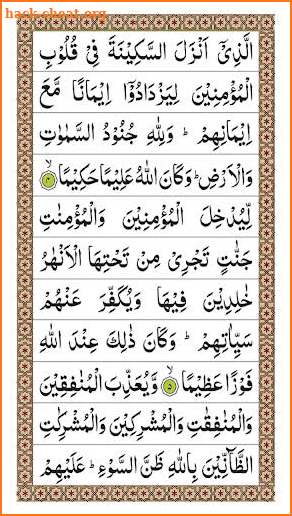 hack-cheat.org
الَّذِیْۤ اَنْزَلَ السَّكِیْنَةَ فِیْ قُلُوْبِ
الْمُؤْمِنِیْنَ لِیَزْدَادُوْۤا اِیْمَانًا مَّعَ
اِیْمَانِهِمْ ؕ وَلِلّٰهِ جُنُوْدُ السَّمٰوٰتِ
وَالْاَرْضِ ؕ وَكَانَ اللّٰهُ عَلِیْمًا حَكِیْمًا ۙ۴
لِّیُدْخِلَ الْمُؤْمِنِیْنَ وَالْمُؤْمِنٰتِ
جَنّٰتٍ تَجْرِیْ مِنْ تَحْتِهَا الْاَنْهٰرُ
خٰلِدِیْنَ فِیْهَا وَیُكَفِّرَ عَنْهُمْ
سَیِّاٰتِهِمْ ؕ وَكَانَ ذٰلِكَ عِنْدَ اللّٰهِ
فَوْزًا عَظِیْمًا ۙ۵ وَّیُعَذِّبَ الْمُنٰفِقِیْنَ
وَالْمُنٰفِقٰتِ وَالْمُشْرِكِیْنَ وَالْمُشْرِكٰتِ
الظَّآنِّیْنَ بِاللّٰهِ ظَنَّ السَّوْءِ ؕ عَلَیْهِمْ
hack-cheat.org